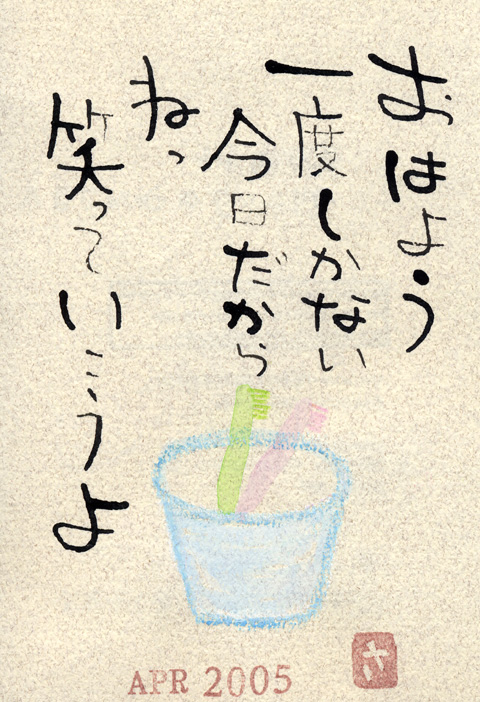 おはよう
一度しかない
今日だから
ねっ
笑っていこうよ
APR 2005
さ